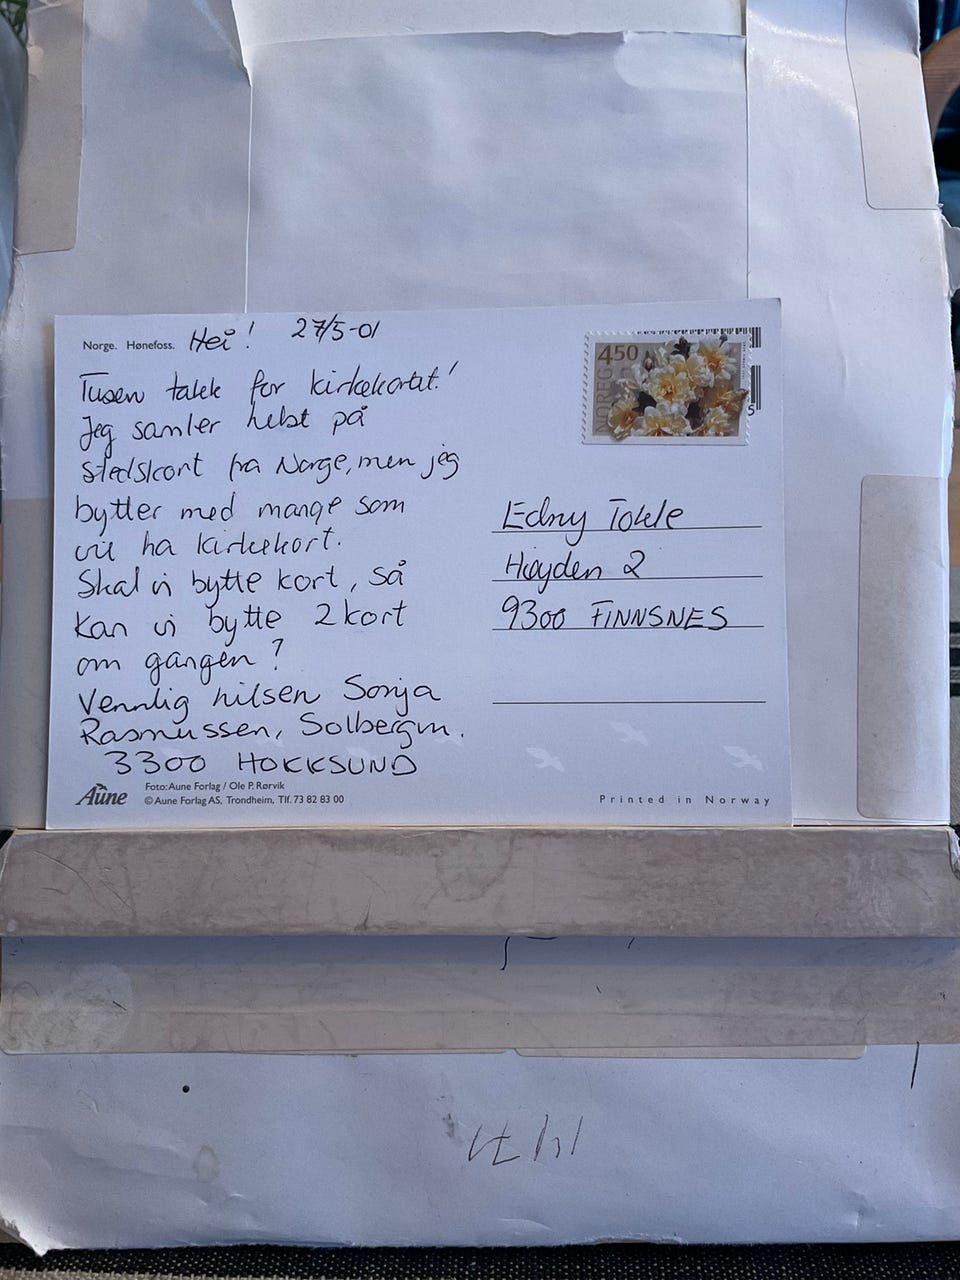 Norge. Hønefoss. Hei! 27/5-01
Tusen takk for kirkekortet!
Jeg samler helst på
stedskort fra Norge, men jeg
bytter med mange som
vil ha kirkekort.
Skal vi bytte kort, så
kan vi bytte 2 kort
om gangen?
Vennlig hilsen Sonja
Rasmussen, Solbergm.
3300 HOKKSUND
Aune
Foto: Aune Forlag / Ole P. Rørvik
© Aune Forlag AS, Trondheim, Tlf. 73 82 83 00
450
NOREG
5
Edny Tokle
Høyden 2
9300 FINNSNES
Printed in Norway